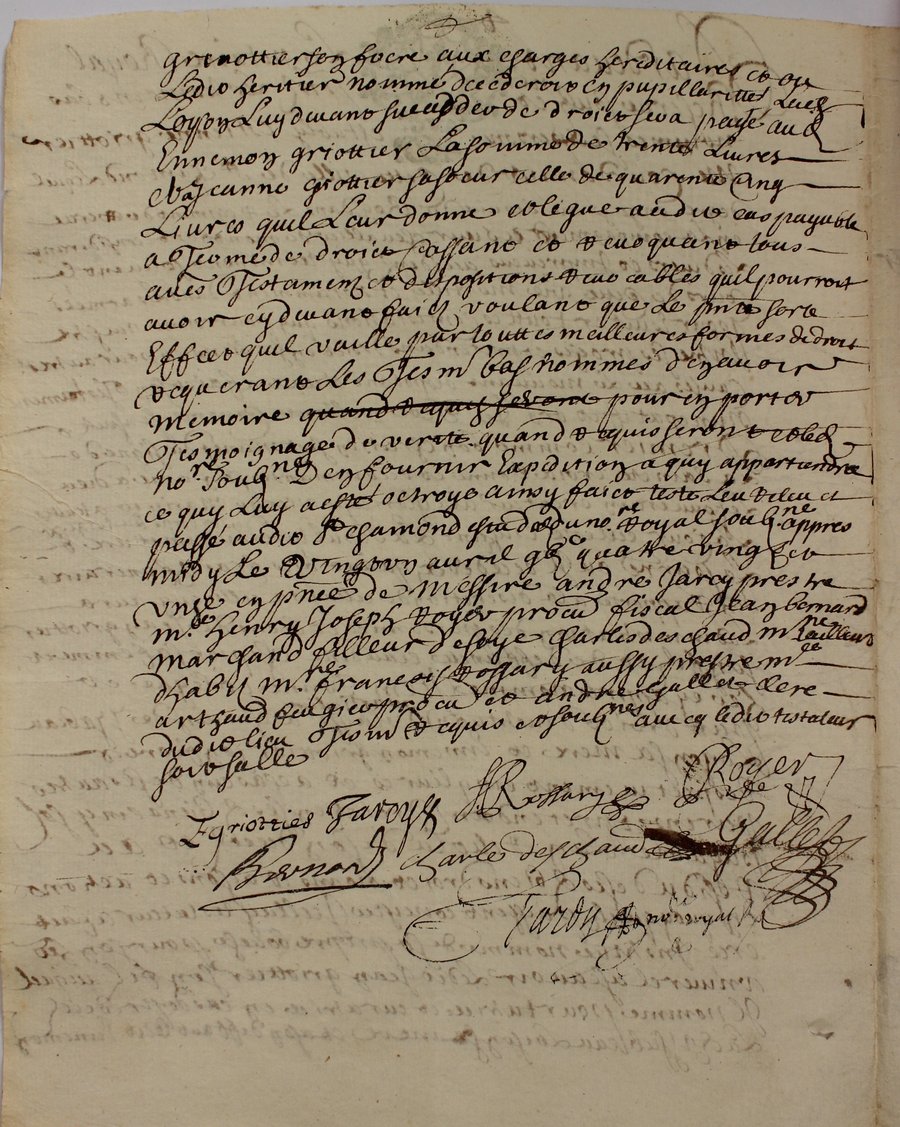 griottier son frere aux charges hereditaires et ou
Ledit heritier nomme decederoit en pupillarité Lad
Loyon Luy devant succeder de droict sera payé aud
Ennemon griottier La somme de trente Livres
et a Jeanne griottier sa soeur celle de quarente cinq
Livres quil Leur donne et legue audit cas payable
a Terme de droict Cassant et revoquant tous
autres Testament et dispositions revocables quil pourroit
avoir cydevant faict voulant que Le pnt sorte
Effect et quil vaille par touttes meilleures formes de droit
requerant Les Tesm bas nommes den avoir
memoire quand requis seront pour en porter
Tesmoignage de verité quand requis seront et led
nore soubne Den fournir Expedition a quy appartiendra
ce quy Luy a esté octroyé ainsy faict testé Leu releu et
passé audit St chamond estude du nore Royal soubne appres
midy Le vingt un avril gbc quatre vingt et
unze en pnce de Messire andre Jarcy prestre
me Henry Joseph Royer procu fiscal Jean bernard
marchand filleur de soye charles deschaud me tailleur
dhabit mre francois Rossary aussy prestre me
arthaud procu et andre Gallet clerc
dudit lieu Tesm requis et soubnes avecq ledit testateur
soit salle
E griottier Jarcys Rossary Royer
Bernard charle deschaud Gallet
Tardy nore royal